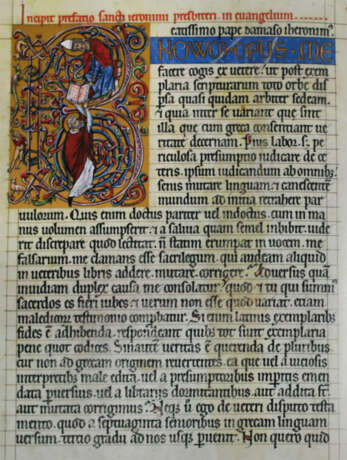 Incipit prefatio sancti ieronimi presbiteri. in euangelium
eatissimo pape damaso iheronim'
NOVVM OPVS ME
facere cogis ex uetere: ut post exem
plaria scripturarum toto orbe dis
psa quasi quidam arbiter sedeam.
& quia inter se uariant que sint
illa que cum greca consentiant ue
ritate decernam. Pius labor. s; pe
riculosa presumptio iudicare de ce
teris. ipsum iudicandum ab omnibus:
senis mutare linguam. & canescentem
mundum ad inicia retrahere par
uulorum. Quis enim doctus pariter uel indoctus. cum in ma
nus uolumen assumpserit. & a saliua quam semel imbibit. uide
rit discrepare quod lectitat: n statim erumpat in uocem. me
falsarium. me clamans esse sacrilegum. qui audeam aliquid
in ueteribus libris addere. mutare. corrigere. Aduersus quam
inuidiam duplex causa me consolatur: quod & tu qui summus
sacerdos es fieri iubes: & uerum non esse quod uariat. etiam
maledicorum testimonio comprobatur. Si enim latinis exemplaribus
fides est adhibenda. respondeant quibus: tot sunt exemplaria
pene quot codices. Sin autem ueritas est querenda de pluribus:
cur non ad grecam originem reuertentes. ea que uel a uiciosis
interpretibus male edita. uel a presumptoribus imperitis emen
data peruersius. uel a librariis dormitantibus. aut addita sunt.
aut mutata corrigimus? Neque uero ego de ueteri disputo testa
mento. quod a septuaginta senioribus in grecam linguam
uersum. tercio gradu ad nos usque peruenit. Non quero quid